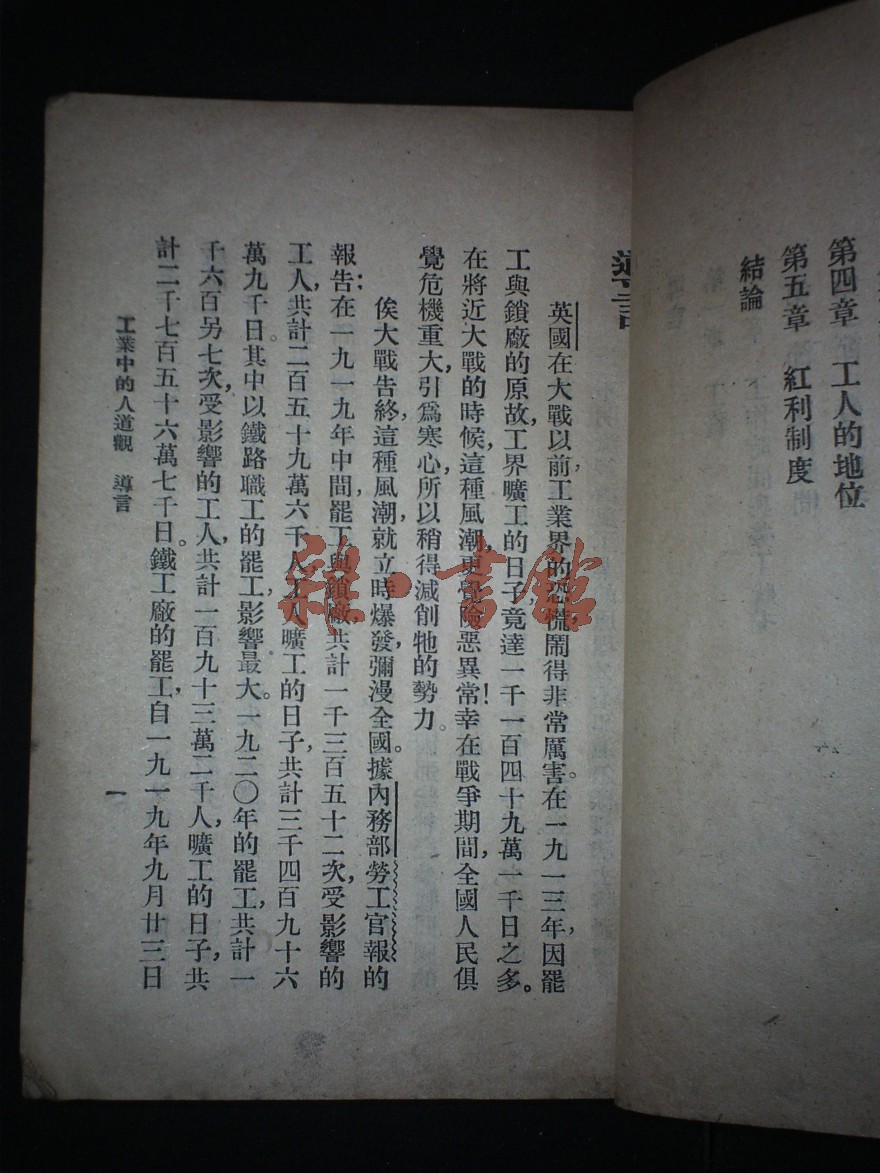 第四章　工人的地位
第五章　紅利制度
結論
導言
英國在大戰以前，工業界的恐慌，鬧得非常厲害。在一九一三年，因罷
工與鎖廠的原故，工界曠工的日子，竟達一千一百四十九萬一千日之多。
在將近大戰的時候，這種風潮，更覺險惡異常！幸在戰爭期間，全國人民俱
覺危機重大，引爲寒心，所以稍得減削牠的勢力。
俟大戰告終，這種風潮，就立時爆發，彌漫全國。據內務部勞工官報的
報告：在一九一九年中間，罷工與鎖廠，共計一千三百五十二次，受影響的
工人，共計二百五十九萬六千人，工人曠工的日子，共計三千四百九十六
萬九千日。其中以鐵路職工的罷工，影響最大。一九二〇年的罷工，共計一
千六百另七次，受影響的工人，共計一百九十三萬二千人，曠工的日子，共
計二千七百五十六萬七千日。鐵工廠的罷工，自一九一九年九月廿三日
工業中的人道觀　導言
一
雜·書館